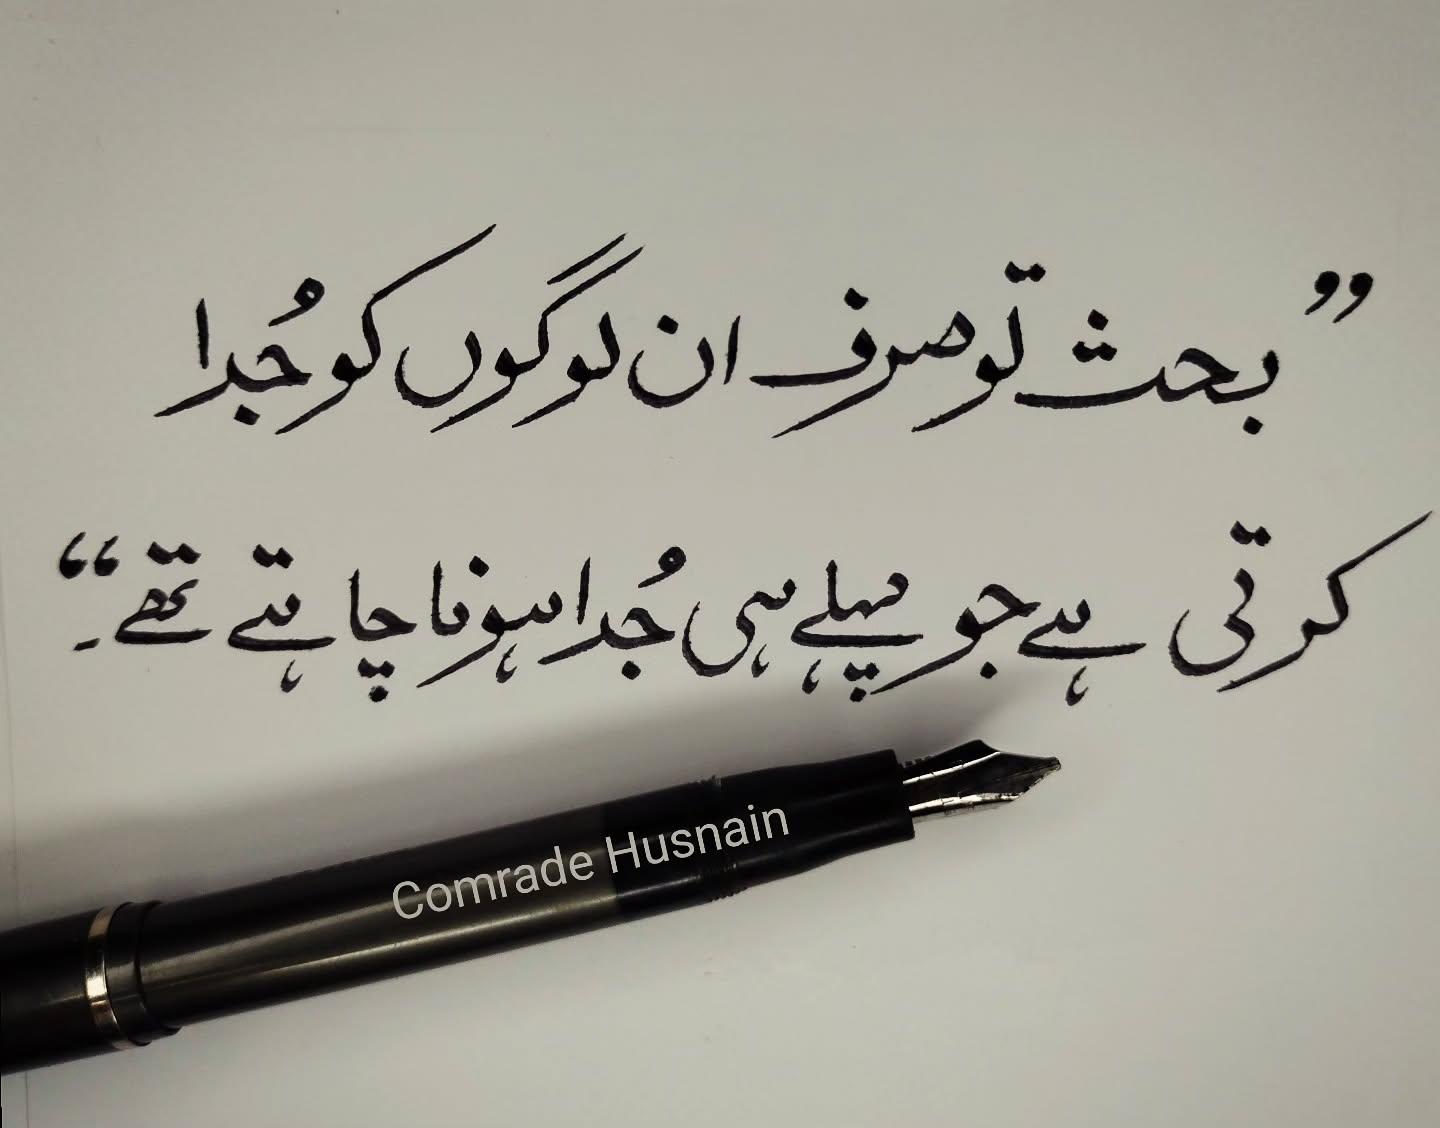 ”بحث تو صرف ان لوگوں کو جُدا
کرتی ہے جو پہلے ہی جُدا ہونا چاہتے تھے۔“
Comrade Husnain